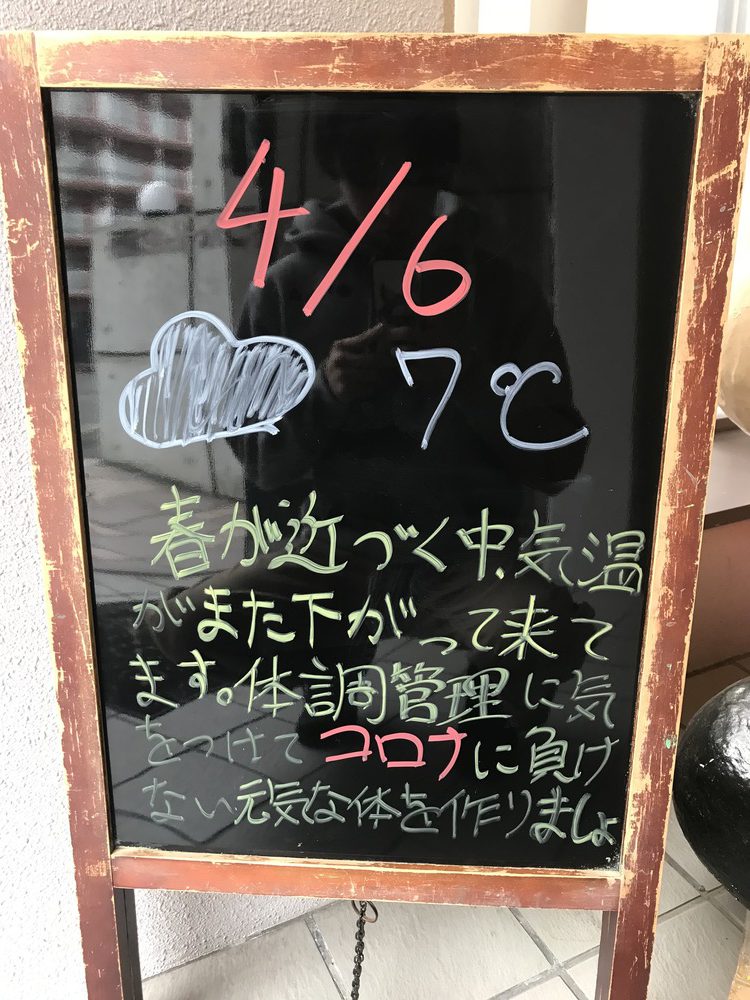 4/6
7℃
春が近づく中、気温
がまた下がって来て
ます。体調管理に気
をつけてコロナに負け
ない元気な体を作りましょ